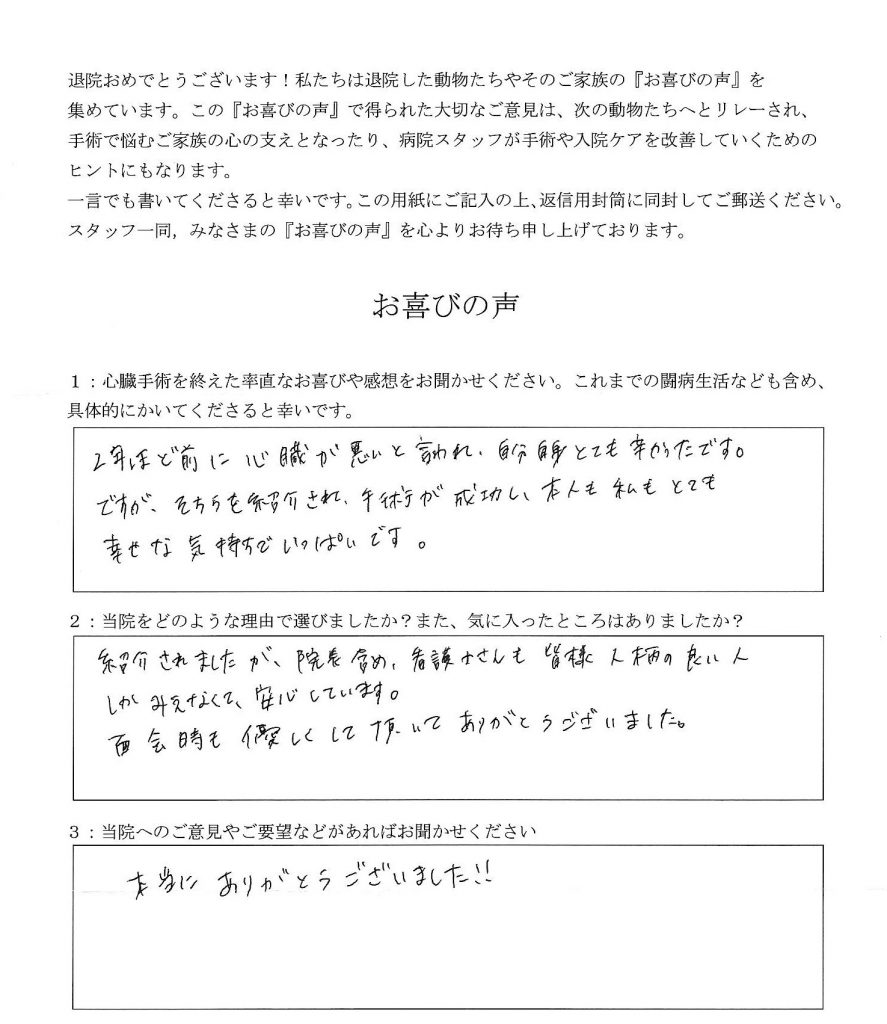 退院おめでとうございます！私たちは退院した動物たちやそのご家族の『お喜びの声』を
集めています。この『お喜びの声』で得られた大切なご意見は、次の動物たちへとリレーされ、
手術で悩むご家族の心の支えとなったり、病院スタッフが手術や入院ケアを改善していくための
ヒントにもなります。
一言でも書いてくださると幸いです。この用紙にご記入の上、返信用封筒に同封してご郵送ください。
スタッフ一同，みなさまの『お喜びの声』を心よりお待ち申し上げております。
お喜びの声
１：心臓手術を終えた率直なお喜びや感想をお聞かせください。これまでの闘病生活なども含め、
具体的にかいてくださると幸いです。
2年ほど前に心臓が悪いと言われ、自分自身とても辛かったです。
ですが、そちらを紹介され、手術が成功し、本人も私もとても
幸せな気持ちでいっぱいです。
２：当院をどのような理由で選びましたか？また、気に入ったところはありましたか？
紹介されましたが、院長含め、看護士さんも皆様人柄の良い人
しかみえなくて、安心しています。
面会時も優しくして頂いてありがとうございました。
３：当院へのご意見やご要望などがあればお聞かせください
本当にありがとうございました!!